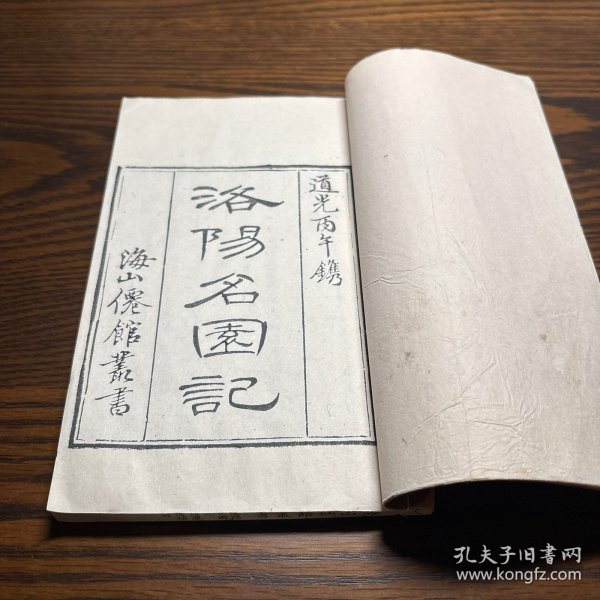 道光丙午鐫
洛陽名園記
海山僊館叢書
孔夫子旧書网
www.kongfz.com